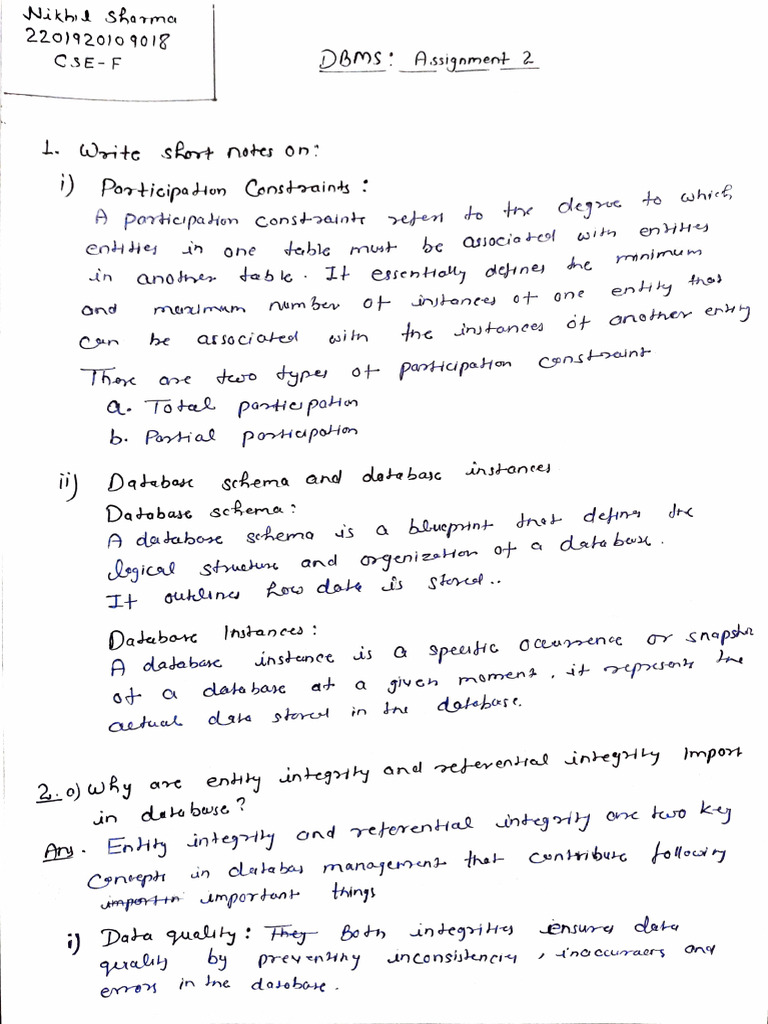 Nikhil Sharma
2201920109018
CSE-F
DBMS: Assignment 2
1. Write short notes on:
i) Participation Constraints:
A participation constraints refers to the degree to which
entities in one table must be associated with entities
in another table. It essentially defines the minimum
and maximum number of instances of one entity that
can be associated with the instances of another entity
There are two types of participation constraint
a. Total participation
b. Partial participation
ii) Database schema and database instances
Database schema:
A database schema is a blueprint that defines the
logical structure and orgenization of a database.
It outlines how data is stored..
Database Instances:
A database instance is a specific occurrence or snapshot
of a database at a given moment, it represents the
actual data stored in the database.
2. a) Why are entity integrity and referential integrity import
in database?
Ans. Entity integrity and referential integrity are two key
concepts in databas management that contribute following
important things
i) Data quality: They Both integrities ensures data
quality by preventing inconsistencies, inaccuracies and
errors in the database.